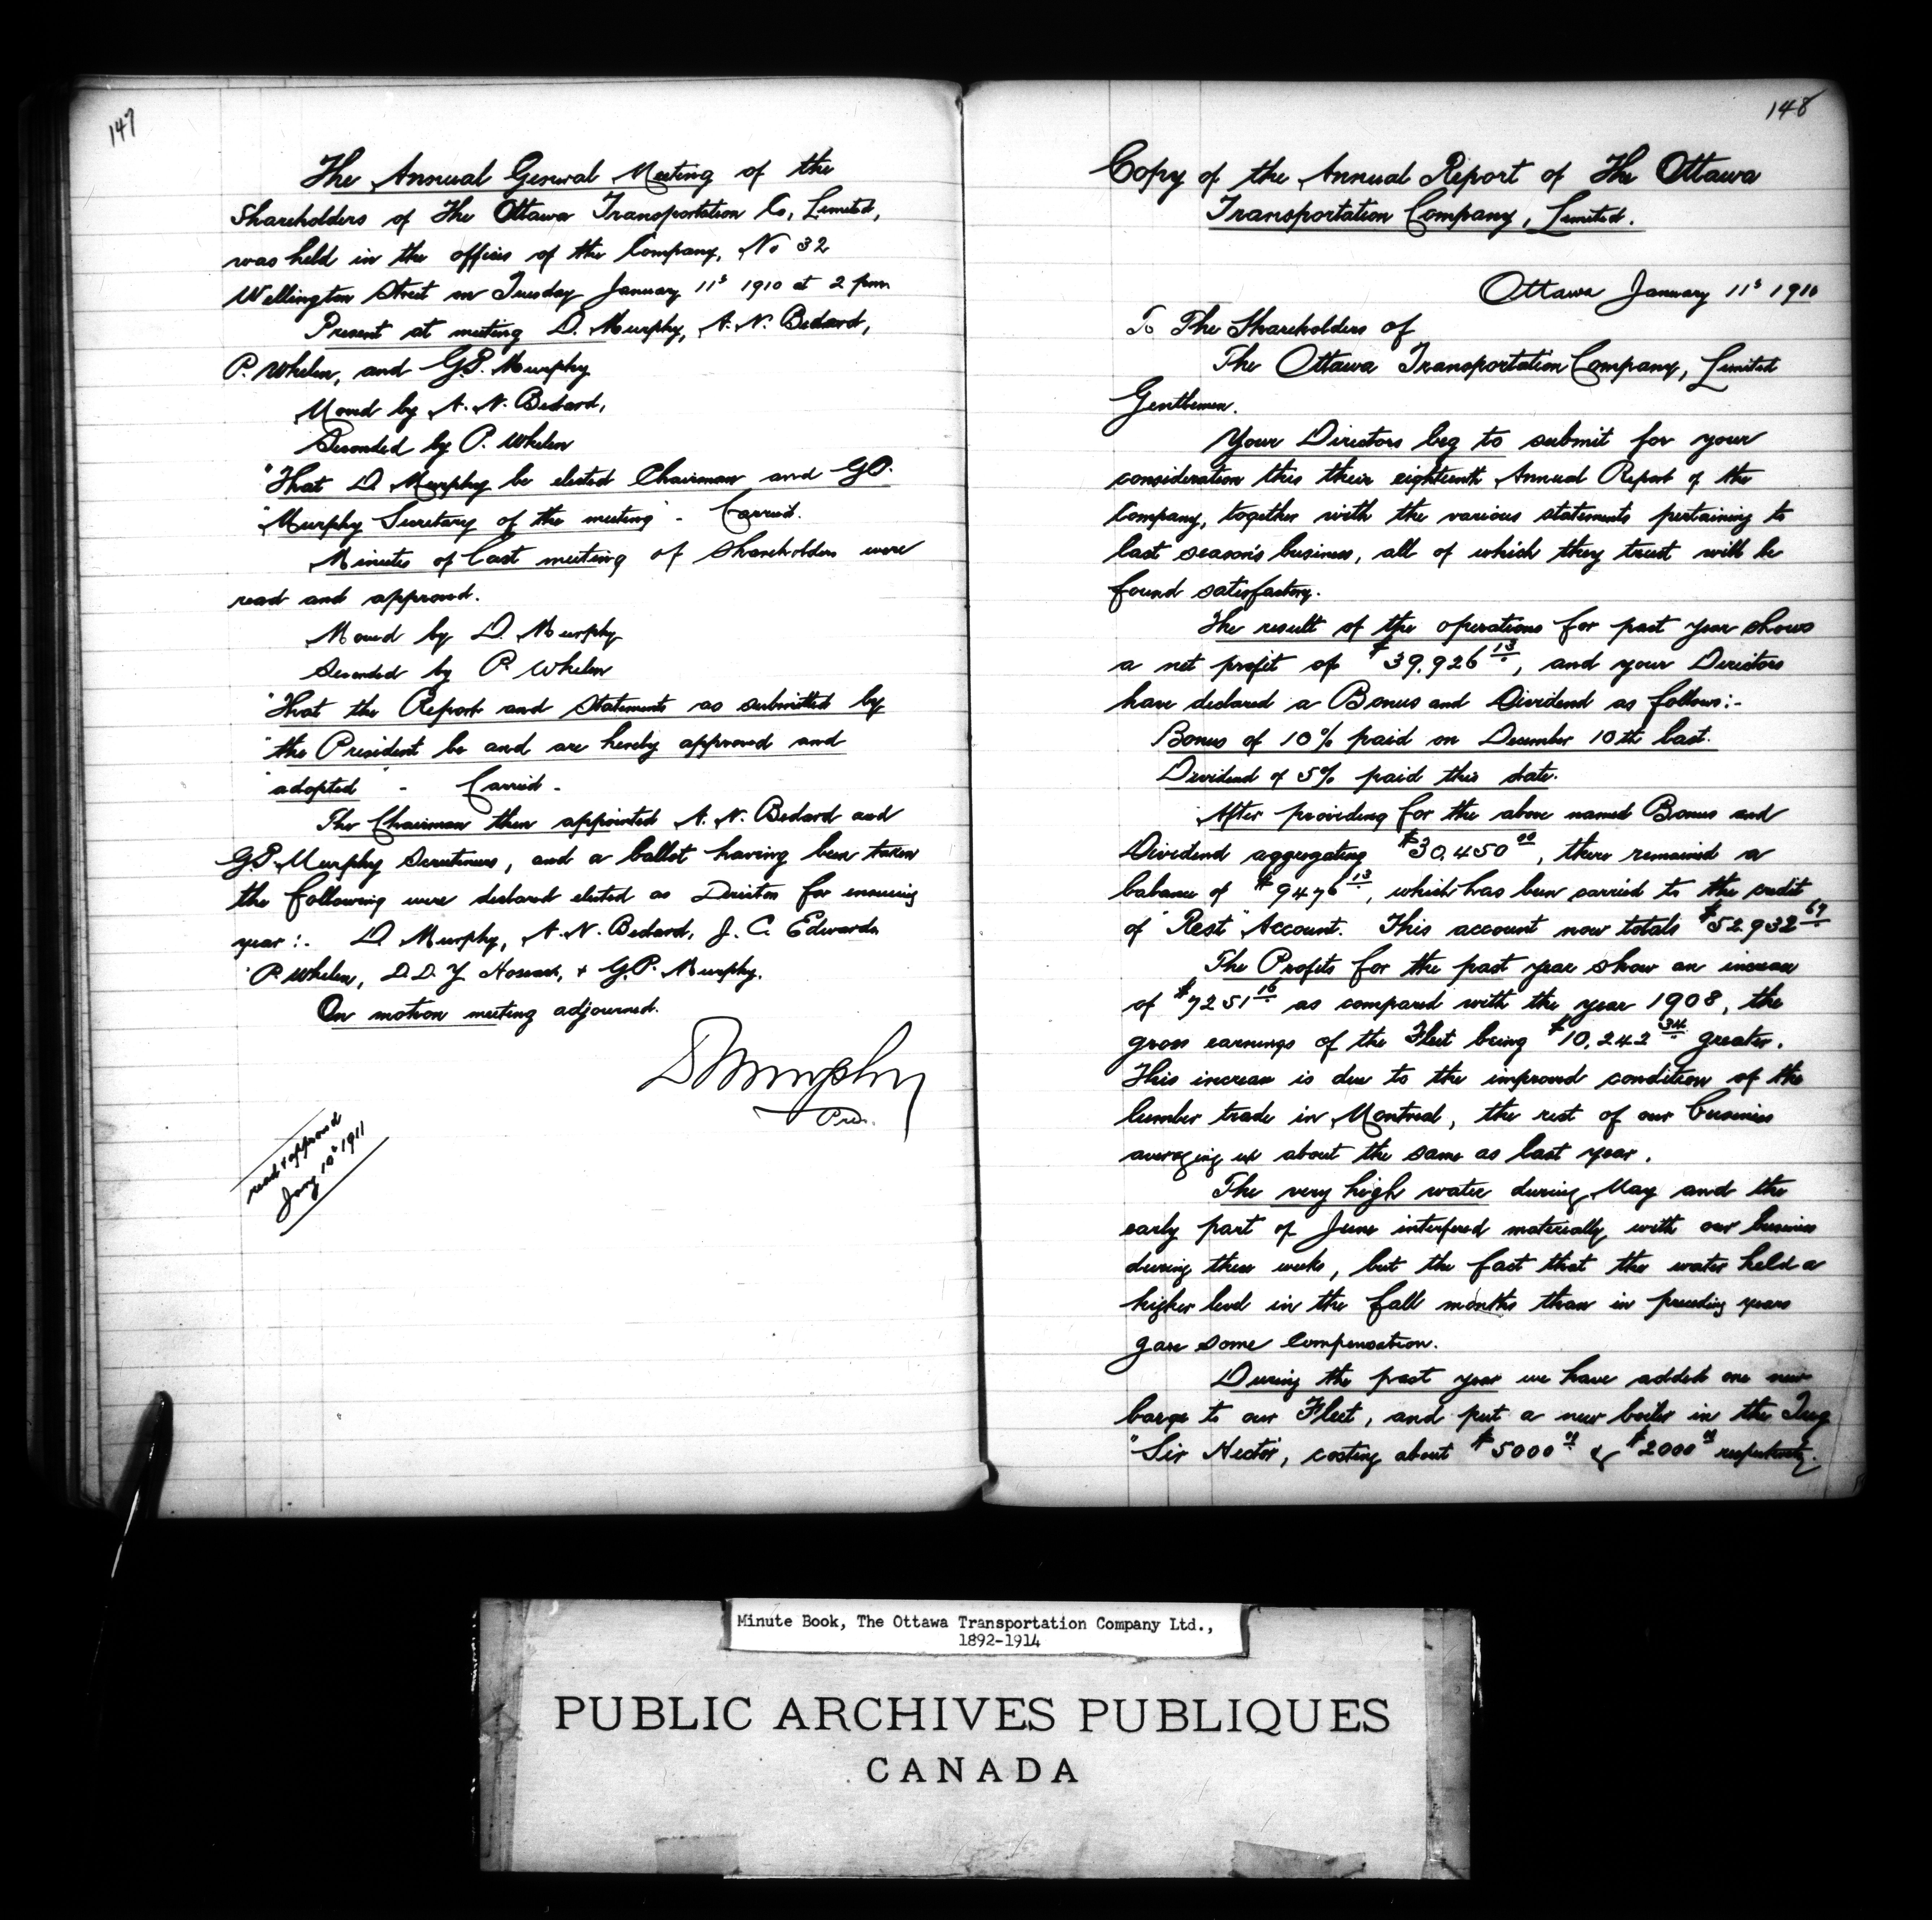 147
The Annual General Meeting of the
Shareholders of The Ottawa Transportation Co, Limited,
was held in the offices of the Company, No 32
Wellington Street on Tuesday January 11th 1910 at 2 pm.
Present at meeting D. Murphy, A. N. Bedard,
P. Whelen, and G.P. Murphy
Moved by A. N. Bedard,
Seconded by P. Whelen
"That D. Murphy be elected Chairman and G.P.
"Murphy Secretary of the meeting" - Carried.
Minutes of last meeting of shareholders were
read and approved.
Moved by D. Murphy
Seconded by P. Whelen
"That the Report and Statements as submitted by
"the President be and are hereby approved and
"adopted" - Carried -
The Chairman then appointed A. N. Bedard and
G.P. Murphy Scrutineers, and a ballot having been taken
the following were declared elected as Directors for ensuing
year:- D. Murphy, A. N. Bedard, J. C. Edwards
P. Whelen, D. D. Y & G.P. Murphy.
On motion meeting adjourned.
D Murphy
Pres.
read & approved
Jany 10th 1911
148
Copy of the Annual Report of The Ottawa
Transportation Company, Limited.
Ottawa January 11th 1910
To The Shareholders of
The Ottawa Transportation Company, Limited
Gentlemen.
Your Directors beg to submit for your
consideration this their eighteenth Annual Report of the
Company, together with the various statements pertaining to
last season's business, all of which they trust will be
found satisfactory.
The result of the operations for past year shows
a net profit of $39,926 13, and your Directors
have declared a Bonus and Dividend as follows:-
Bonus of 10% paid on December 10th last.
Dividend of 5% paid this date.
After providing for the above named Bonus and
Dividend aggregating $30,450 00, there remained a
balance of $9476 13, which has been carried to the credit
of "Rest" Account. This account now totals $52,932 67
The Profits for the past year show an increase
of $7251 16 as compared with the year 1908, the
gross earnings of the Fleet being $10,242 34 greater.
This increase is due to the improved condition of the
lumber trade in Montreal, the rest of our business
averaging up about the same as last year.
The very high water during May and the
early part of June interfered materially with our business
during these weeks, but the fact that the water held a
higher level in the fall months than in preceding years
gave some compensation.
During the past year we have added one new
barge to our Fleet, and put a new boiler in the Tug
"Sir Hector", costing about $5000 00 & $2000 00 respectively.
Minute Book, The Ottawa Transportation Company Ltd.,
1892-1914
PUBLIC ARCHIVES PUBLIQUES
CANADA